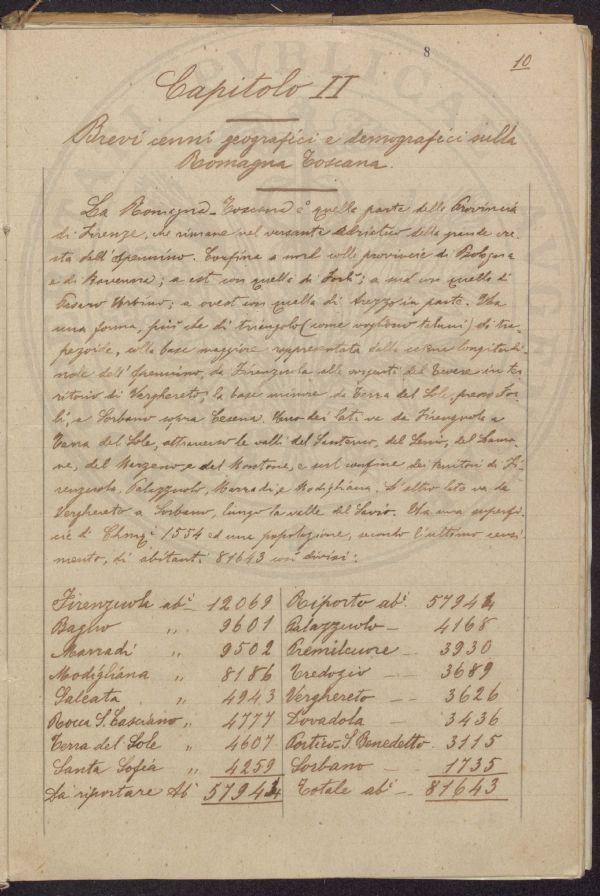 8
10
Capitolo II
Brevi cenni geografici e demografici sulla
Romagna Toscana.
La Romagna-Toscana è quella parte della Provincia
di Firenze, che rimane nel versante adriatico della grande cre-
sta dell'Apennino. Confina a nord colle provincie di Bologna
e di Ravenna; a est con quella di Forlì; a sud con quella di
Pesaro Urbino; a ovest con quella di Arezzo in parte. Ha
una forma, più che di triangolo (come vogliono taluni) di tra-
pezoide, colla base maggiore rappresentata dalla catena longitudi-
nale dell'Apennino, da Firenzuola alle sorgenti del Tevere in ter-
ritorio di Verghereto; la base minore da Terra del Sole, presso For-
lì, a Sorbano sopra Cesena. Uno dei lati va da Firenzuola a
Terra del Sole, attraverso le valli del Santerno, del Senio, del Lamo-
ne, del Marzeno e del Montone, e sul confine dei territori di Fi-
renzuola, Palazzuolo, Marradi, e Modigliana. L'altro lato va da
Verghereto a Sorbano, lungo la valle del Savio. Ha una superfi-
cie di Chmqi 1554 ed una popolazione, secondo l'ultimo censi-
mento, di abitanti 81643 così divisi:
Firenzuola abi 12069 Riporto abi 57944
Bagno ,, 9601 Palazzuolo - 4168
Marradi ,, 9502 Premilcuore - 3930
Modigliana ,, 8186 Tredozio - 3689
Galeata ,, 4943 Verghereto - 3626
Rocca S. Casciano ,, 4777 Dovadola - 3436
Terra del Sole ,, 4607 Portico-S. Benedetto - 3115
Santa Sofia ,, 4259 Sorbano - 1735
Da riportare Abi 57944 Totale abi - 81643